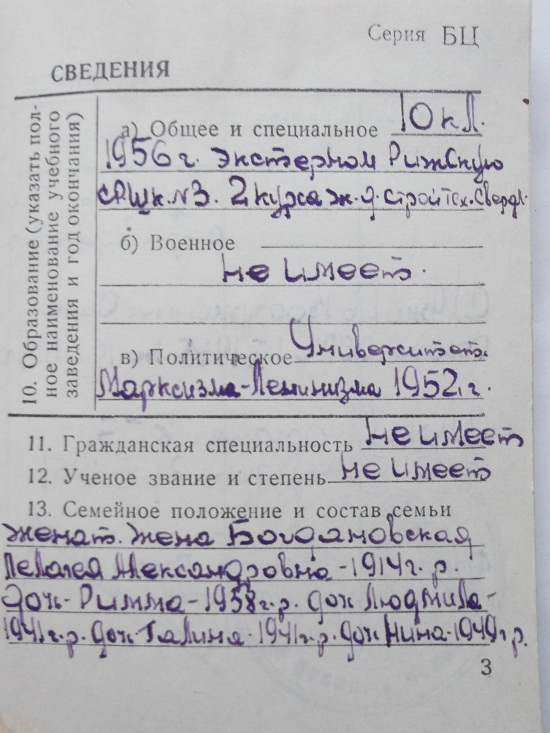 Серия БЦ
СВЕДЕНИЯ
10. Образование (указать пол-
ное наименование учебного
заведения и год окончания)
а) Общее и специальное 10 кл.
1956 г. экстерном Рижскую
ср. шк. №3. 2 курса ж.д. строй тех. Свердл.
б) Военное
не имеет.
в) Политическое Университет
Марксизма-Ленинизма 1952 г.
11. Гражданская специальность не имеет
12. Ученое звание и степень не имеет
13. Семейное положение и состав семьи
женат. жена Богдановская
Пелагея Александровна - 1914 г.р.
дочь - Римма - 1938 г.р. дочь Людмила -
1941 г.р. дочь Галина - 1941 г.р. дочь Нина - 1949 г.р.
3